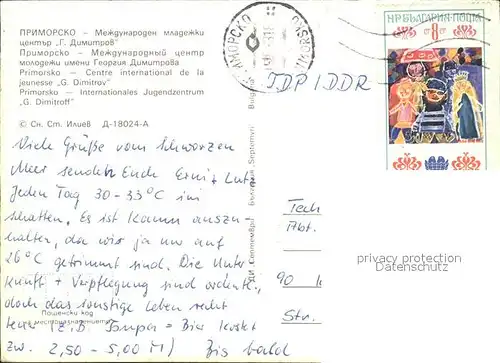 ПРИМОРСКО — Международен младежки
център „Г. Димитров"
Приморско — Международный центр
молодежи имени Георгия Димитрова
Primorsko — Centre international de la
jeunesse „G. Dimitrov"
Primorsko — Internationales Jugendzentrum
„G. Dimitroff"
© Сн. Ст. Илиев Д-18024-А
НР БЪЛГАРИЯ·ПОЩА
ПРИМОРСКО
PRIMORSKO
TDP / DDR
Viele Grüße vom Schwarzen
Meer senden Euch Erni + Lutz
Jeden Tag 30-33°C im
Schatten. Es ist kaum auszu-
halten, da wir ja nur auf
26°C getrimmt sind. Die Unter-
kunft + Verpflegung sind ordentl.,
doch das sonstige Leben recht
teuer (z.B. Бира = Bier kostet
zw. 2,50 - 5,00 M) Bis bald
Пощенски код
и местоназначение
Abt.
90
Str.
privacy protection
Datenschutz
Български Septemvri